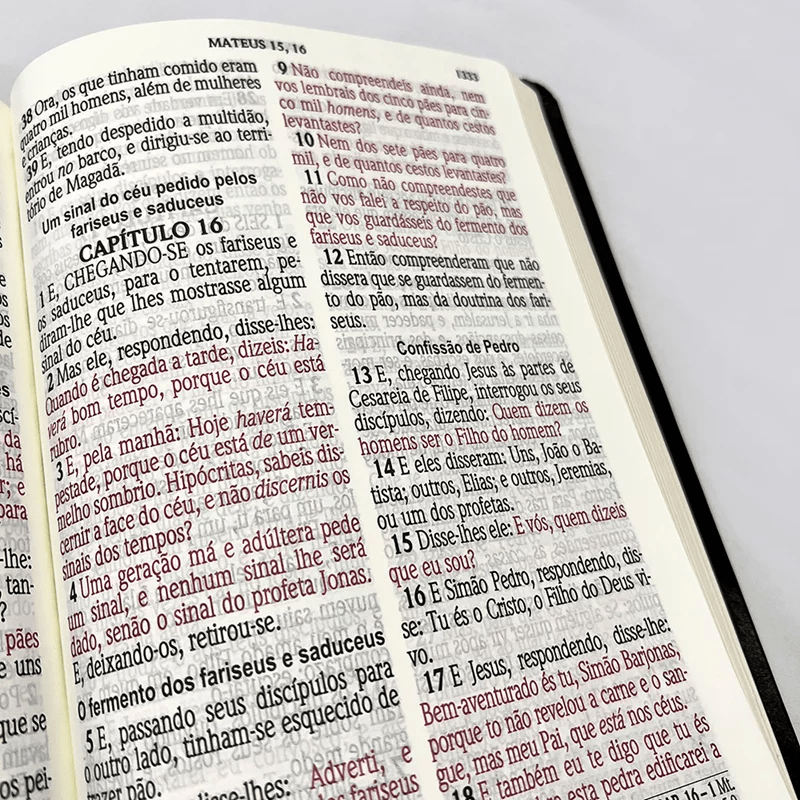 MATEUS 15, 16
1333
38 Ora, os que tinham comido eram
quatro mil homens, além de mulheres
e crianças.
39 E, tendo despedido a multidão,
entrou no barco, e dirigiu-se ao terri-
tório de Magadã.
Um sinal do céu pedido pelos
fariseus e saduceus
CAPÍTULO 16
1 E, CHEGANDO-SE os fariseus e
os saduceus, para o tentarem, pe-
diram-lhe que lhes mostrasse algum
sinal do céu.
2 Mas ele, respondendo, disse-lhes:
Quando é chegada a tarde, dizeis: Ha-
verá bom tempo, porque o céu está
rubro.
3 E, pela manhã: Hoje haverá tem-
pestade, porque o céu está de um ver-
melho sombrio. Hipócritas, sabeis dis-
cernir a face do céu, e não discernis os
sinais dos tempos?
4 Uma geração má e adúltera pede
um sinal, e nenhum sinal lhe será
dado, senão o sinal do profeta Jonas.
E, deixando-os, retirou-se.
O fermento dos fariseus e saduceus
5 E, passando seus discípulos para
o outro lado, tinham-se esquecido de
trazer pão.
disse-lhes: Adverti, e
fariseus
9 Não compreendeis ainda, nem
vos lembrais dos cinco pães para cin-
co mil homens, e de quantos cestos
levantastes?
10 Nem dos sete pães para quatro
mil, e de quantos cestos levantastes?
11 Como não compreendestes que
não vos falei a respeito do pão, mas
que vos guardásseis do fermento dos
fariseus e saduceus?
12 Então compreenderam que não
dissera que se guardassem do fermen-
to do pão, mas da doutrina dos fari-
seus.
Confissão de Pedro
13 E, chegando Jesus às partes de
Cesareia de Filipe, interrogou os seus
discípulos, dizendo: Quem dizem os
homens ser o Filho do homem?
14 E eles disseram: Uns, João o Ba-
tista; outros, Elias; e outros, Jeremias,
ou um dos profetas.
15 Disse-lhes ele: E vós, quem dizeis
que eu sou?
16 E Simão Pedro, respondendo, dis-
se: Tu és o Cristo, o Filho do Deus vi-
vo.
17 E Jesus, respondendo, disse-lhe:
Bem-aventurado és tu, Simão Barjonas,
porque to não revelou a carne e o san-
gue, mas meu Pai, que está nos céus.
18 E também eu te digo que tu és
esta pedra edificarei a
16-1 Mt.